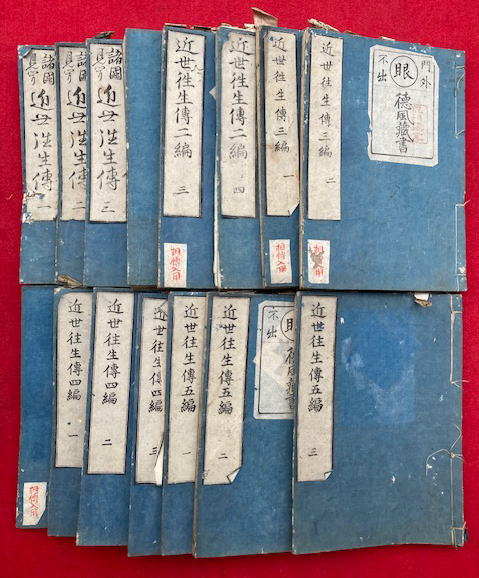 諸國
見聞
近世往生傳
諸國
見聞
近世往生傳 二
諸國
見聞
近世往生傳 三
近世往生傳二編 三
近世往生傳二編 四
近世往生傳三編 一
近世往生傳三編 二
門外
眼
不出
德風藏書
近世往生傳四編 一
近世往生傳四編 二
近世往生傳四編 三
近世往生傳五編 一
近世往生傳五編 二
眼
不出
德風藏書
近世往生傳五編 三